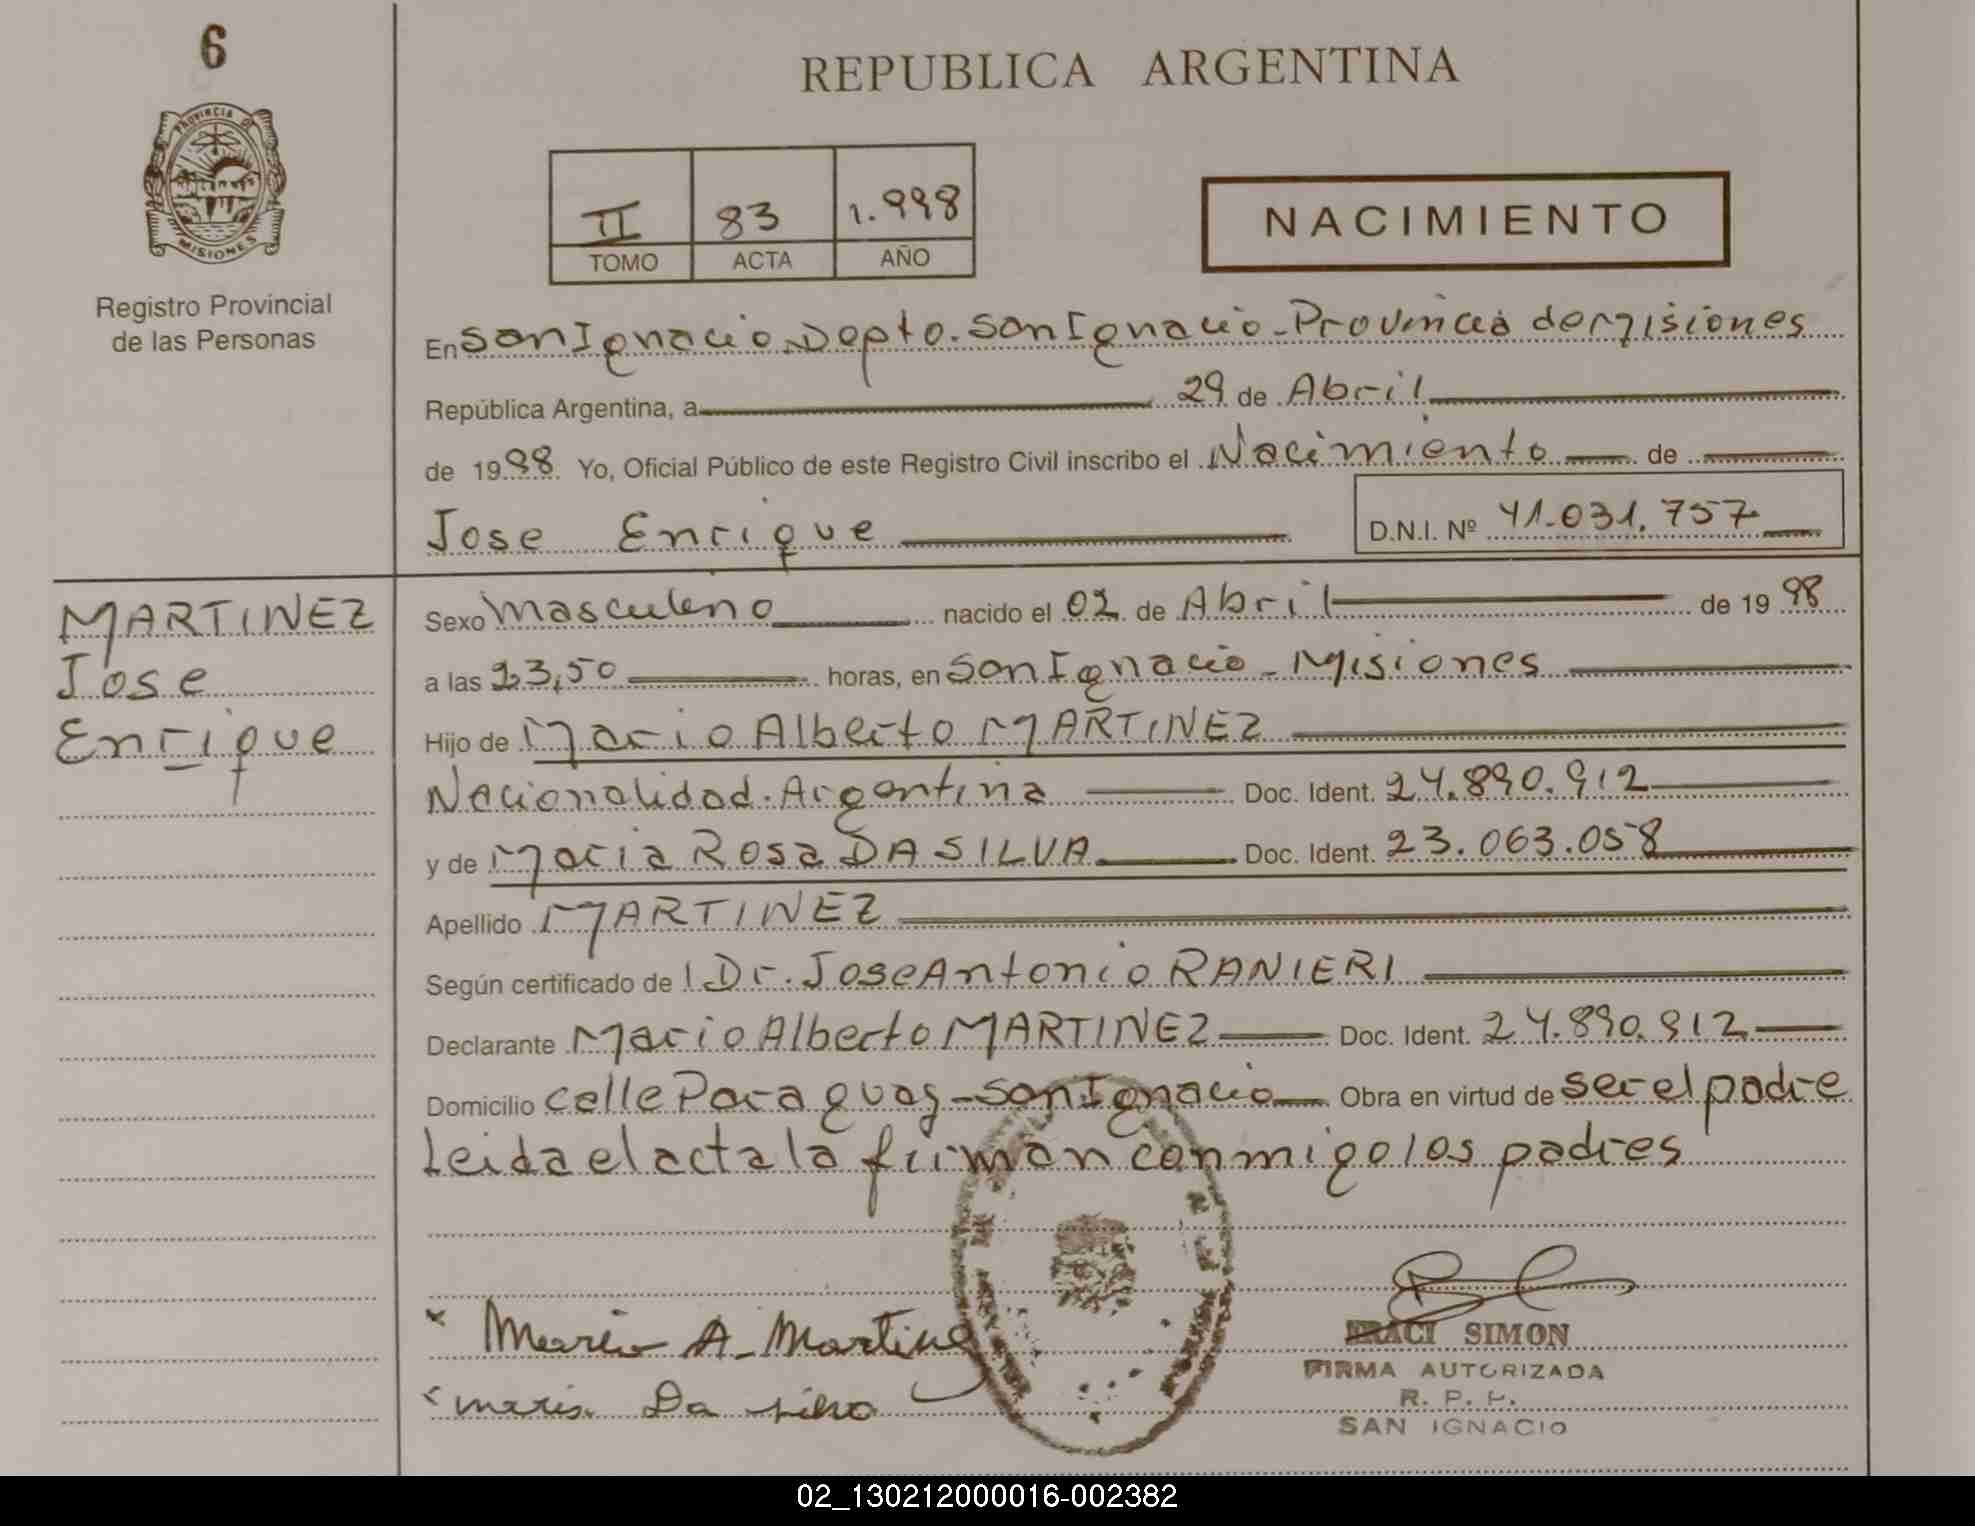 6
PROVINCIA DE
MISIONES
Registro Provincial
de las Personas
REPUBLICA ARGENTINA
II 83 1.998
TOMO ACTA AÑO
NACIMIENTO
En San Ignacio Depto. San Ignacio - Provincia de Misiones
República Argentina, a 29 de Abril
de 1998 Yo, Oficial Público de este Registro Civil inscribo el Nacimiento de
Jose Enrique
D.N.I. Nº 41.031.757
MARTINEZ
Jose
Enrique
Sexo Masculino nacido el 02 de Abril de 1998
a las 23,50 horas, en San Ignacio - Misiones
Hijo de Mario Alberto MARTINEZ
Nacionalidad. Argentina Doc. Ident. 24.890.912
y de Maria Rosa DA SILVA Doc. Ident. 23.063.058
Apellido MARTINEZ
Según certificado de l Dr. Jose Antonio RANIERI
Declarante Mario Alberto MARTINEZ Doc. Ident. 24.890.912
Domicilio calle Paraguay - San Ignacio Obra en virtud de ser el padre
Leida el acta la firman conmigo los padres
x Mario A. Martinez
x Maria Da Silva
IRACI SIMON
FIRMA AUTORIZADA
R. P. P.
SAN IGNACIO
02_130212000016-002382